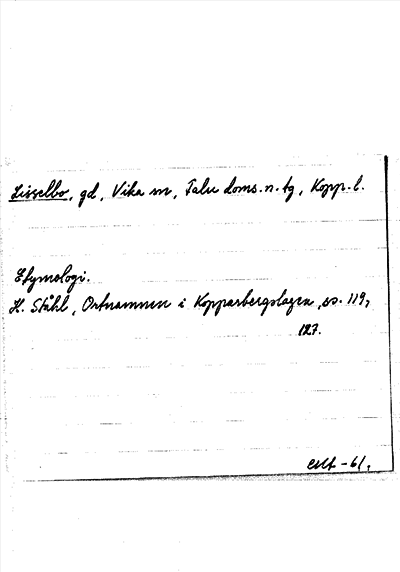 Lisselbo, gd, Vika sn, Falu doms.n.tg, Kopp.l.
Etymologi.
H. Ståhl, Ortnamnen i Kopparbergslagen, ss. 119,
127.
-61.